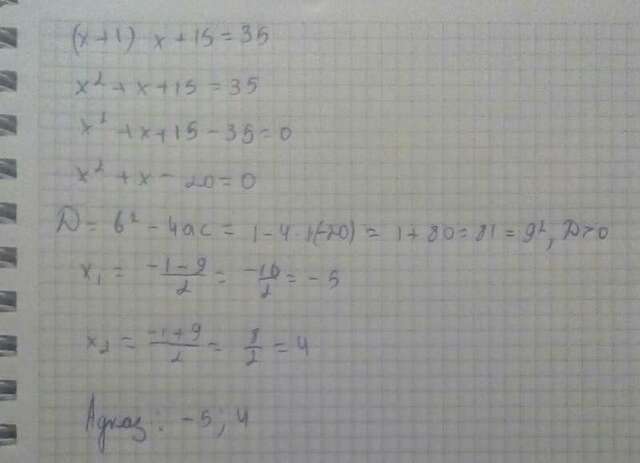 (x+1) x+15=35
x²+x+15=35
x²+x+15-35=0
x²+x-20=0
D=b²-4ac=1-4·1(-20)=1+80=81=9², D>0
x₁=\frac{-1-9}{2}=\frac{-10}{2}=-5
x₂=\frac{-1+9}{2}=\frac{8}{2}=4
Адказ: -5; 4